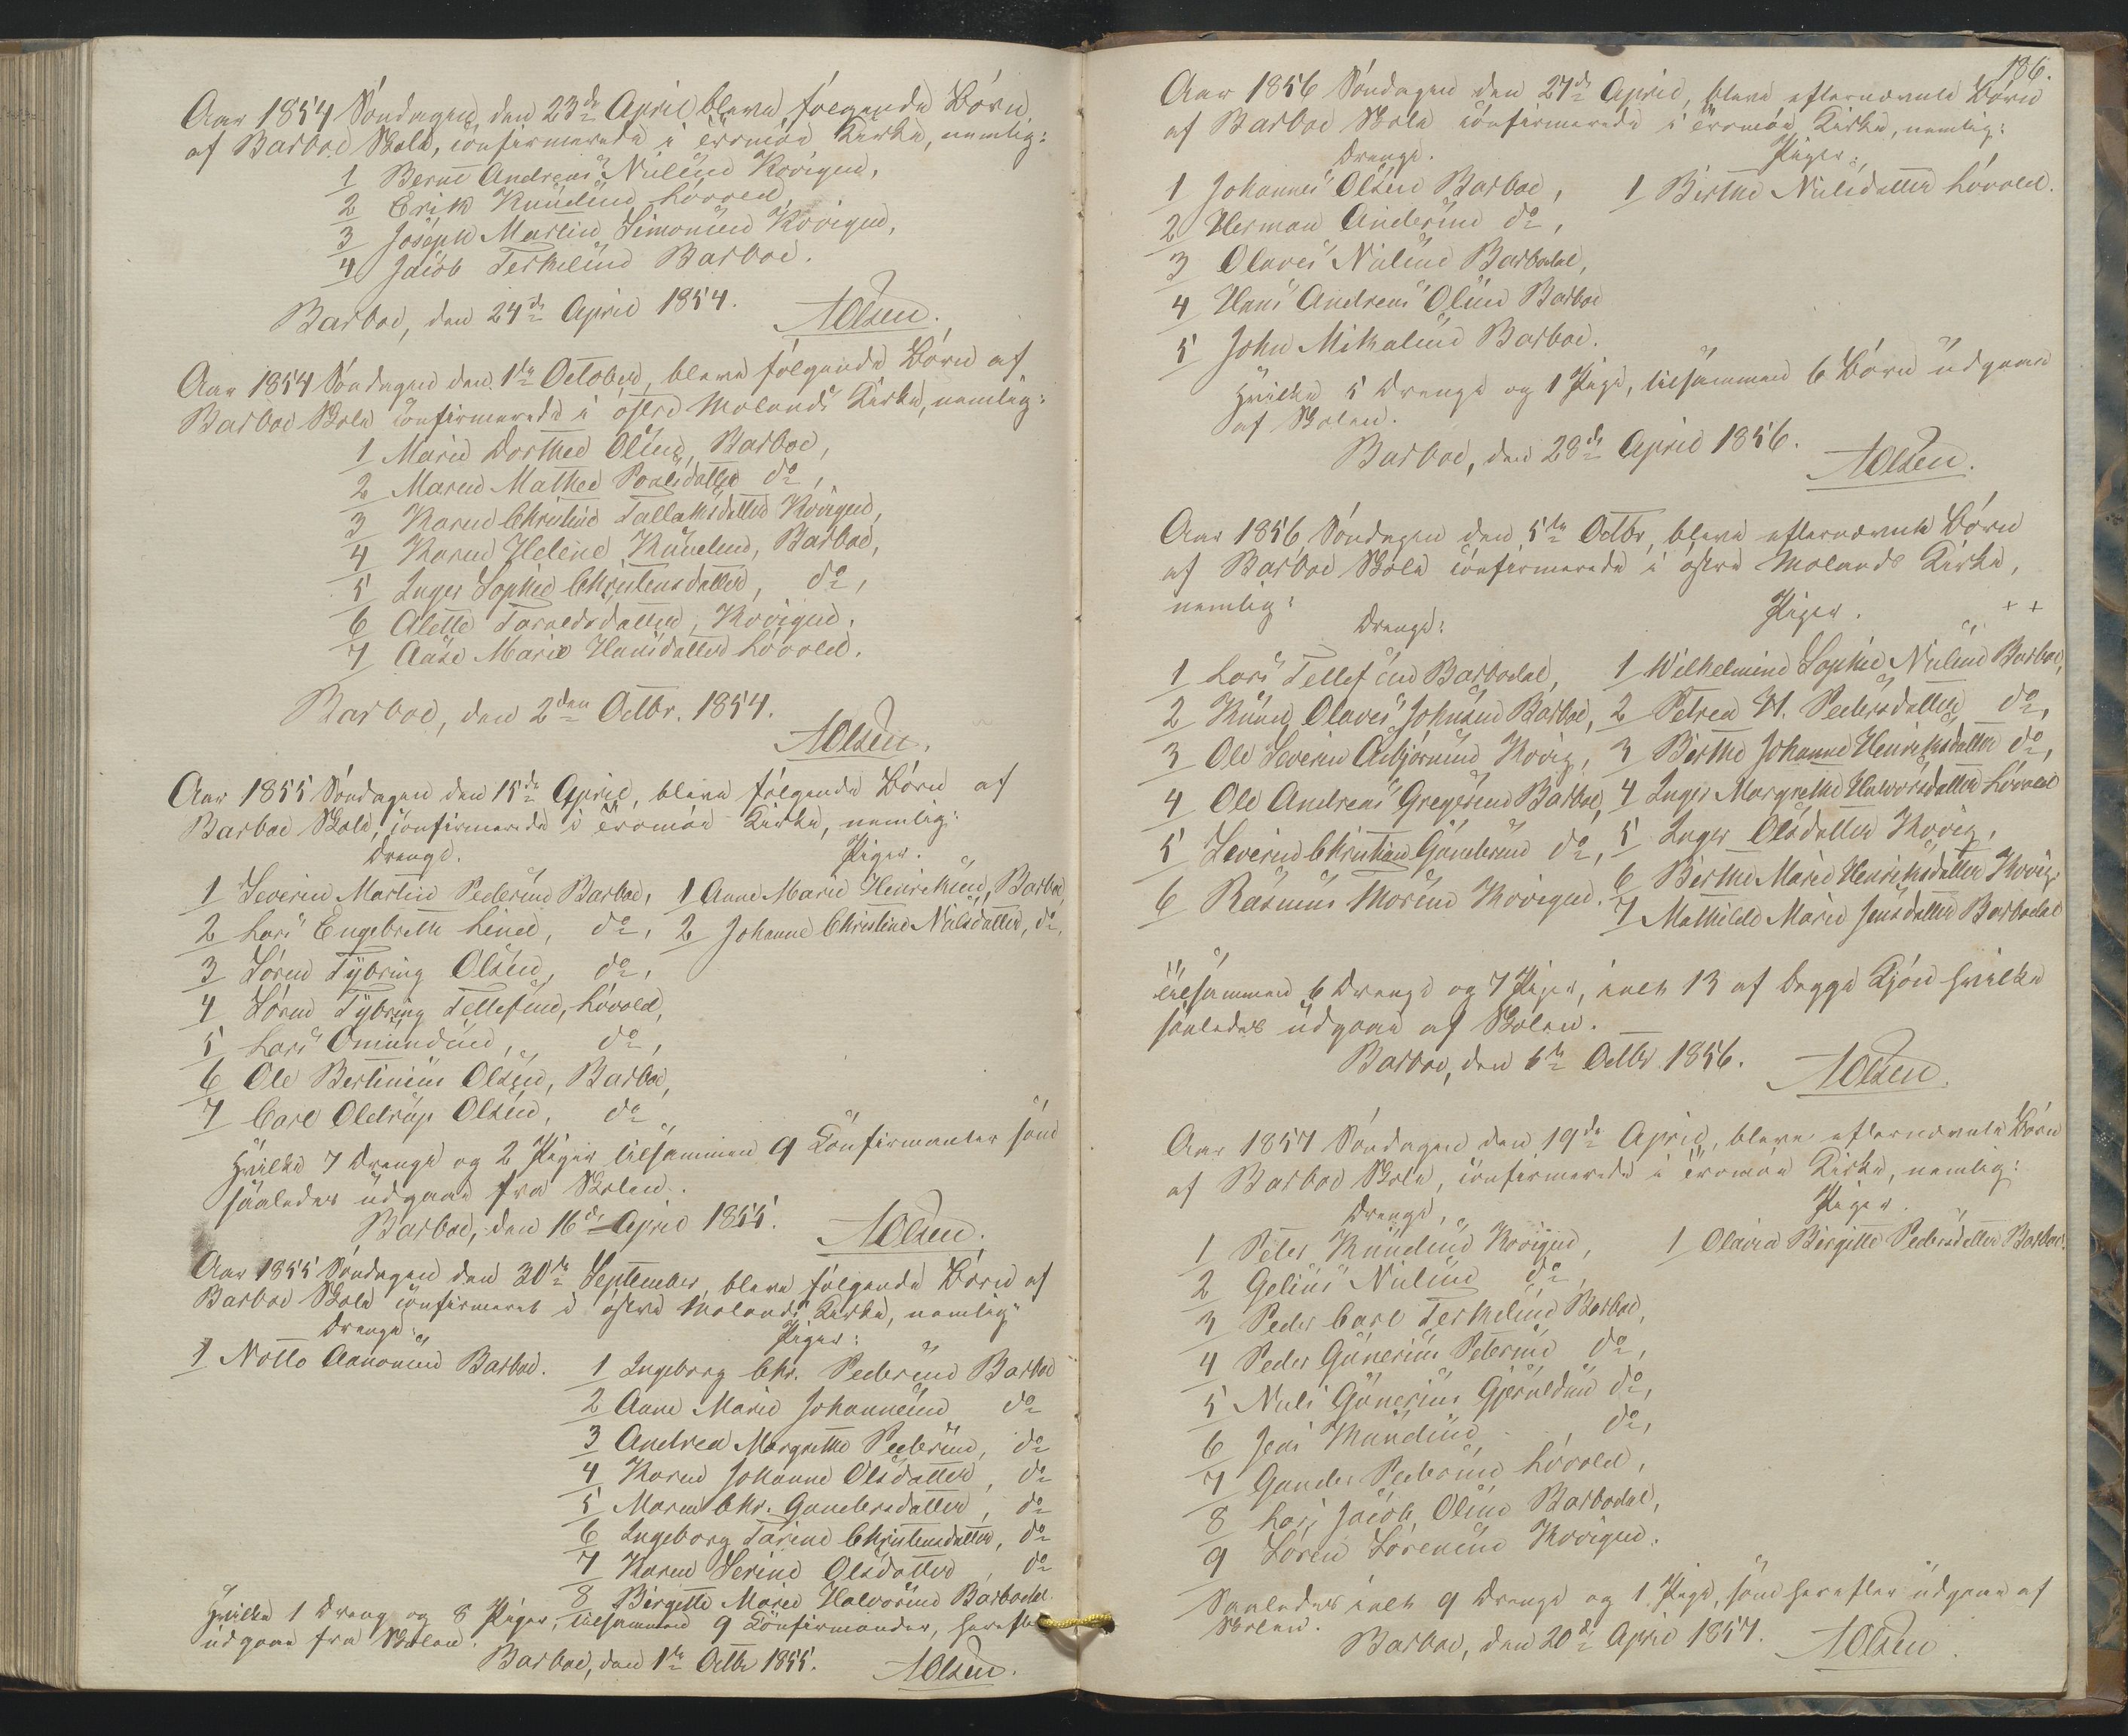 Aar 1854 Søndagen den 23de April bleve følgende Børn
af Barboe Skole, confirmerede i Tromøe Kirke, nemlig:
1 Bernt Andreas Nielsen Kovigen,
2 Erik Knudsen Lövold,
3 Joseph Martin Simonsen Kovigen,
4 Jacob Terkelsen Barboe.
Barboe, den 24de April 1854.
AOlsen.
Aar 1854 Søndagen den 1ste October, bleve følgende Børn af
Barboe Skole confirmerede i østre Molands Kirke, nemlig:
1 Marie Dorthea Olsen, Barboe,
2 Maren Mathea Poulsdatter do,
3 Karen Christine Tallaksdatter Kovigen,
4 Karen Helene Knudsen, Barboe,
5 Inger Sophie Christensdatter, do,
6 Alette Taraldsdatter, Kovigen.
7 Aase Marie Hansdatter Lövold.
Barboe, den 2den Octbr. 1854.
AOlsen.
Aar 1855 Søndagen den 15de April, bleve følgende Børn af
Barboe Skole, confirmerede i Tromøe Kirke, nemlig:
Drenge. Piger.
1 Severin Martin Pedersen Barboe, 1 Anne Marie Henriksen, Barboe
2 Lars Engebreth Lind, do, 2 Johanne Christine Nielsdatter, do,
3 Søren Tybring Olsen, do,
4 Søren Tybring Tellefsen, Lövold,
5 Lars Omundsen, do,
6 Ole Bertinius Olsen, Barboe,
7 Carl Oldrup Olsen, do,
Hvilke 7 Drenge og 2 Piger tilsammen 9 Confirmanter som
saaledes udgaae fra Skolen.
Barboe, den 16de April 1855.
AOlsen.
Aar 1855 Søndagen den 30te September, bleve følgende Børn af
Barboe Skole confirmeret i østre Molands Kirke, nemlig
Drenge: Piger:
1 Notto Aanonsen Barboe. 1 Ingeborg Chr. Pedersen Barboe
2 Anne Marie Johannesen do
3 Andrea Margrethe Pedersen, do
4 Karen Johanne Olsdatter, do
5 Maren Chr. Gundersdatter, do
6 Ingeborg Tarine Christensdatter, do
7 Karen Serine Olsdatter, do
8 Birgitte Marie Halvorsen Barbodal.
Hvilke 1 Dreng og 8 Piger, tilsammen 9 Confirmander, herefter
udgaae fra Skolen.
Barboe, den 1te Octbr 1855.
AOlsen.
186.
Aar 1856 Søndagen den 27de April, bleve efternævnte Børn
af Barboe Skole confirmerede i Tromøe Kirke, nemlig:
Drenge. Piger:
1 Johannes Olsen Barboe, 1 Birthe Nielsdatter Lövold.
2 Herman Andersen do,
3 Olaves Nielsen Barbodal,
4 Hans Andreas Olsen Barboe
5 John Mikalsen Barboe.
Hvilke 5 Drenge og 1 Pige, tilsammen 6 Børn udgaae
af Skolen.
Barboe, den 28de April 1856.
AOlsen.
Aar 1856 Søndagen den 5te Octbr, bleve efternævnte Børn
af Barboe Skole confirmerede i østre Molands Kirke,
nemlig:
Drenge: Piger. + +
1 Lars Tellefsen Barbodal, 1 Wilhelmine Sophie Nielsen Barboe,
2 Knud Olaves Johnsen Barboe, 2 Petrea H. Pedersdatter do,
3 Ole Severin Asbjørnsen Kovig, 3 Birthe Johanne Henriksdatter do,
4 Ole Andreas Gregersen Barboe, 4 Inger Margrethe Halvorsdatter Lövold
5 Severin Christian Gundersen do, 5 Inger Olsdatter Kovig,
6 Rasmus Thorsen Kovigen. 6 Birthe Marie Henriksdatter Kovig
7 Mathilde Marie Jensdatter Barbodal
tilsammen 6 Drenge og 7 Piger, ialt 13 af begge Kjøn hvilke
saaledes udgaae af Skolen.
Barboe, den 6te Octbr. 1856.
AOlsen.
Aar 1857 Søndagen den 19de April, bleve efternævnte Børn
af Barboe Skole, confirmerede i Tromøe Kirke, nemlig:
Drenge, Piger.
1 Peter Knudsen Kovigen, 1 Olavia Birgitte Pedersdatter Barboe.
2 Gelius Nielsen do,
3 Peder Carl Terkelsen Barboe,
4 Peder Gunerius Petersen do,
5 Niels Gunerius Gjeruldsen do,
6 Jens Knudsen do,
7 Gunder Pedersen Lövold,
8 Lars Jacob Olsen Barbodal,
9 Søren Sørensen Kovigen.
Saaledes ialt 9 Drenge og 1 Pige, som herefter udgaae af
Skolen.
Barboe, den 20de April 1857.
AOlsen.